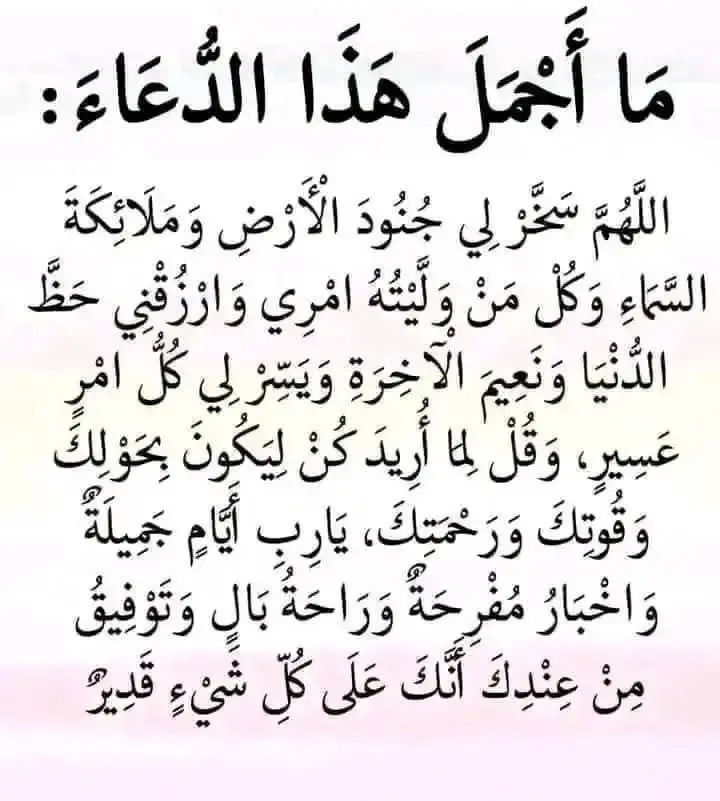 مَا أَجْمَلَ هَذَا الدُّعَاءَ:
اللَّهُمَّ سَخَّرْ لِي جُنُودَ الْأَرْضِ وَمَلَائِكَةَ
السَّمَاءِ وَكُلْ مَنْ وَلَّيْتُهُ امْرِي وَارْزُقْنِي حَظَّ
الدُّنْيَا وَنَعِيمَ الْآخِرَةِ وَيَسِّرْ لِي كُلُّ امْرٍ
عَسِيرٍ، وَقُلْ لِمَا أُرِيدَ كُنْ لِيَكُونَ بِحَوْلِكَ
وَقُوتِكَ وَرَحْمَتِكَ، يَارِبِ أَيَّامٍ جَمِيلَةٌ
وَاخْبَارُ مُفْرِحَةٌ وَرَاحَةُ بَالٍ وَتَوْفِيقُ
مِنْ عِنْدِكَ أَنَّكَ عَلَى كُلِّ شَيْءٍ قَدِيرٌ